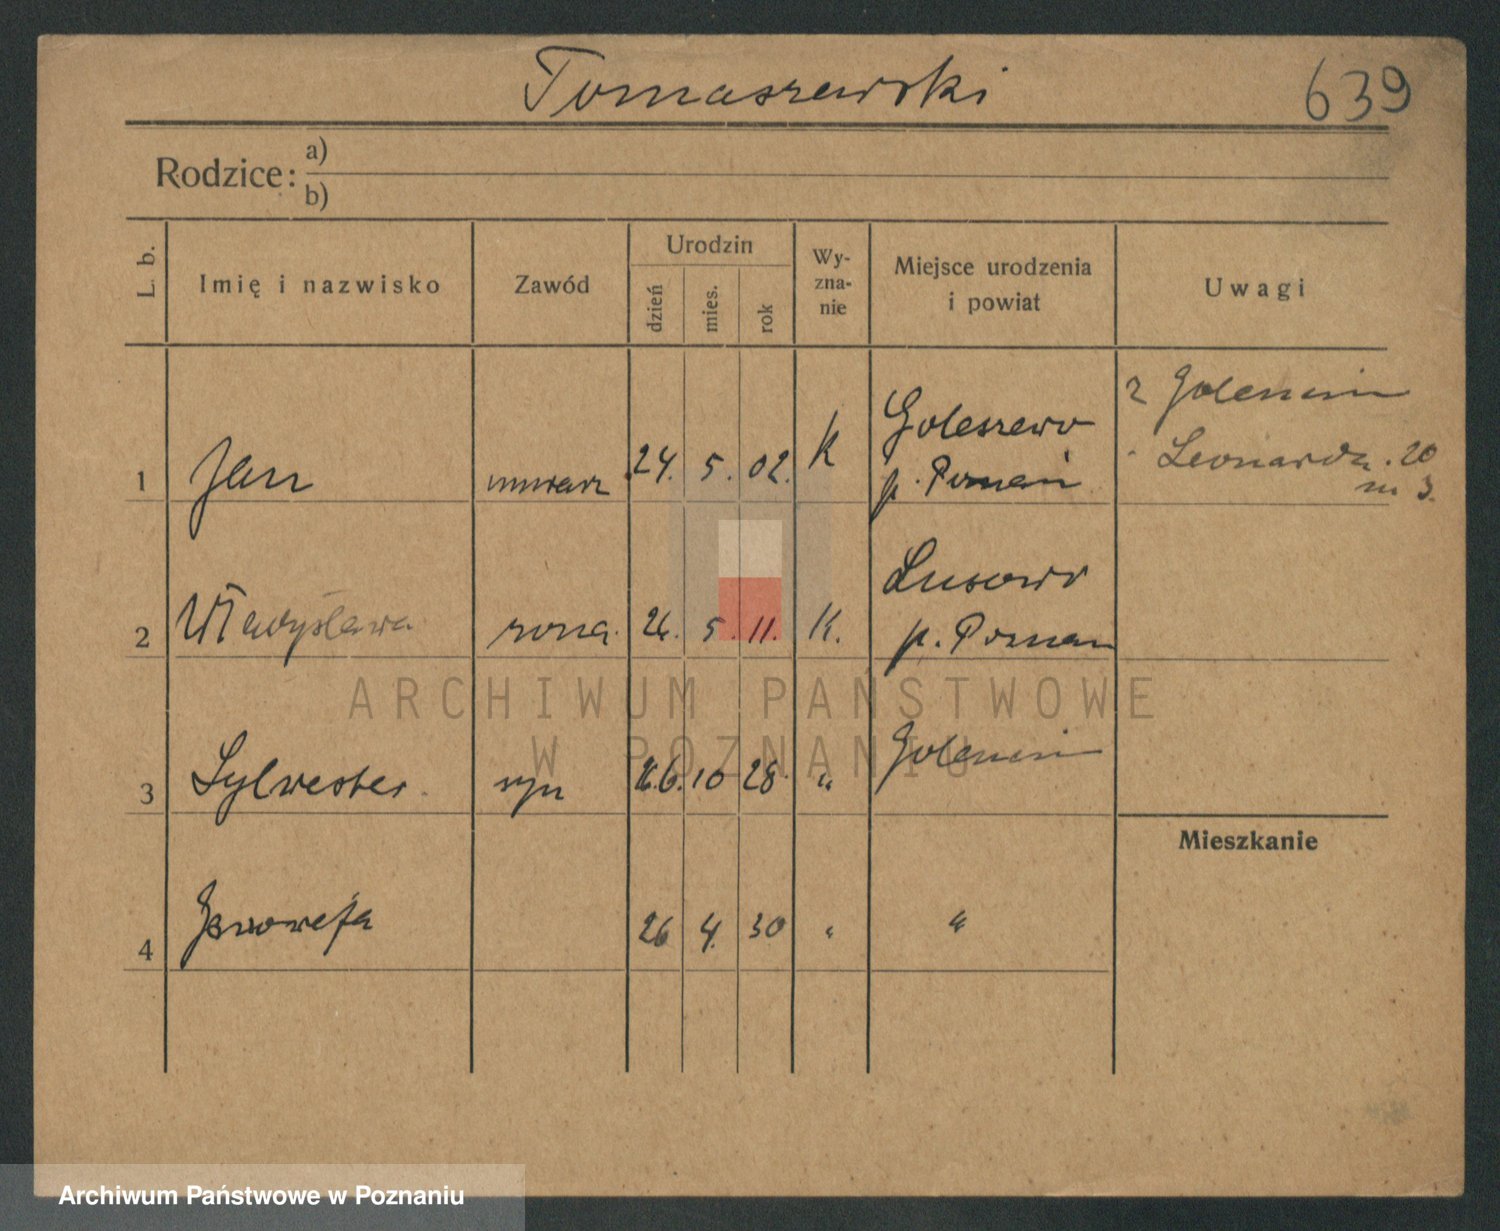 Tomaszewski
639
Rodzice:
a)
b)
L. b.
Imię i nazwisko
Zawód
Urodzin
dzień
mies.
rok
Wy-
zna-
nie
Miejsce urodzenia
i powiat
Uwagi
1 Jan murarz 24. 5. 02. K
Goleszewo
p. Poznań
z Golenczewa
Leonarda 20
m 3.
2 Władysława żona 5. 11. K.
Lusowo
p. Poznań
3 Sylwester syn 10 28 "
4 26 4. 30 " "
Mieszkanie
ARCHIWUM PAŃSTWOWE
W POZNANIU
Archiwum Państwowe w Poznaniu